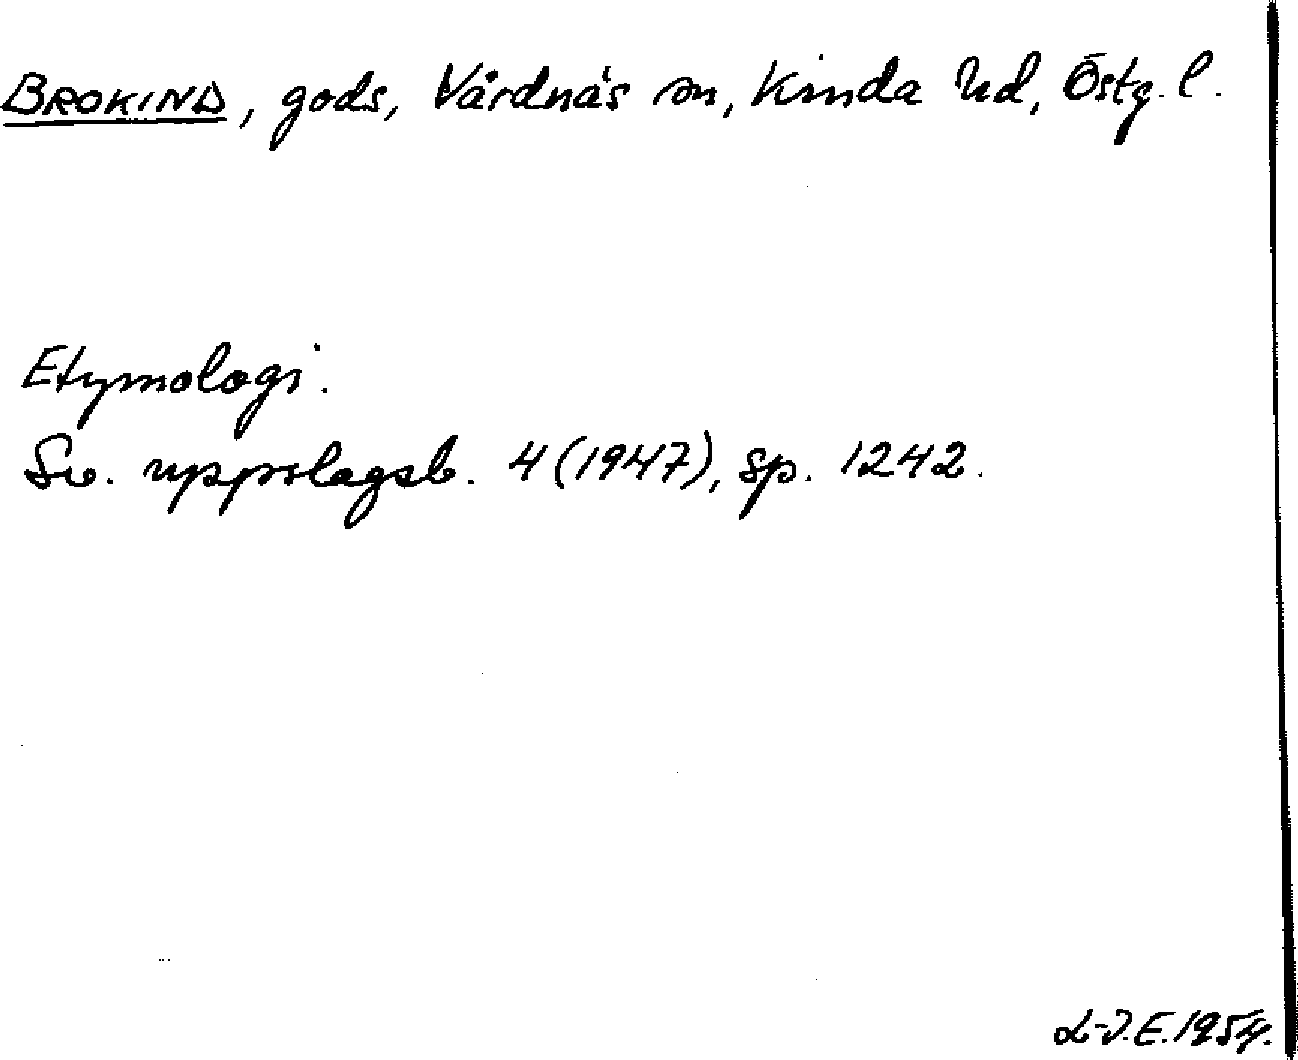 BROKIND, gods, Vårdnäs sn, Kinda hd, Östg. l.
Etymologi.
Sv. uppslagsb. 4 (1947), sp. 1242.
L-J.E. 1954.